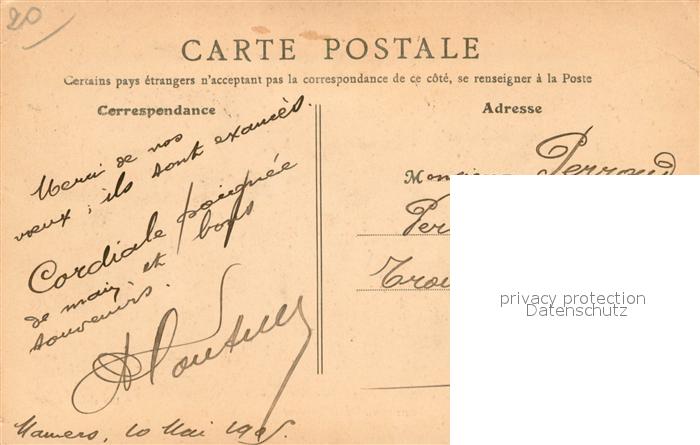 20
CARTE POSTALE
Certains pays étrangers n'acceptant pas la correspondance de ce côté, se renseigner à la Poste
Correspondance
Merci de vos
vœux, ils sont exaucés.
Cordiale poignée
de main, et bons
souvenirs.
Mamers, 10 Mai
Adresse
Monsieur Perroud
privacy protection
Datenschutz